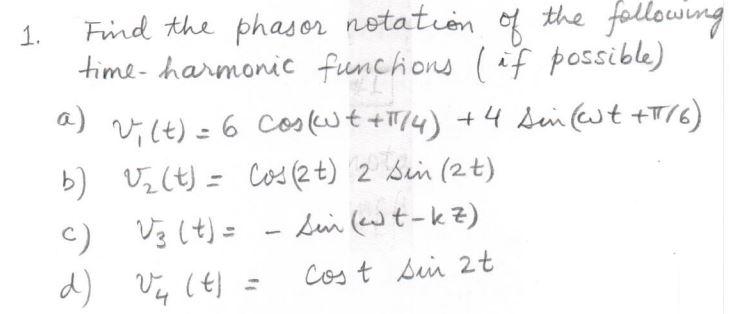 1. Find the phasor notation of the following
time-harmonic functions (if possible)
a) V₁(t) = 6 Cos(ωt+π/4) + 4 Sin(ωt+π/6)
b) V₂(t) = Cos(2t) 2 Sin(2t)
c) V₃(t) = - Sin(ωt-kz)
d) V₄(t) = Cos t Sin 2t